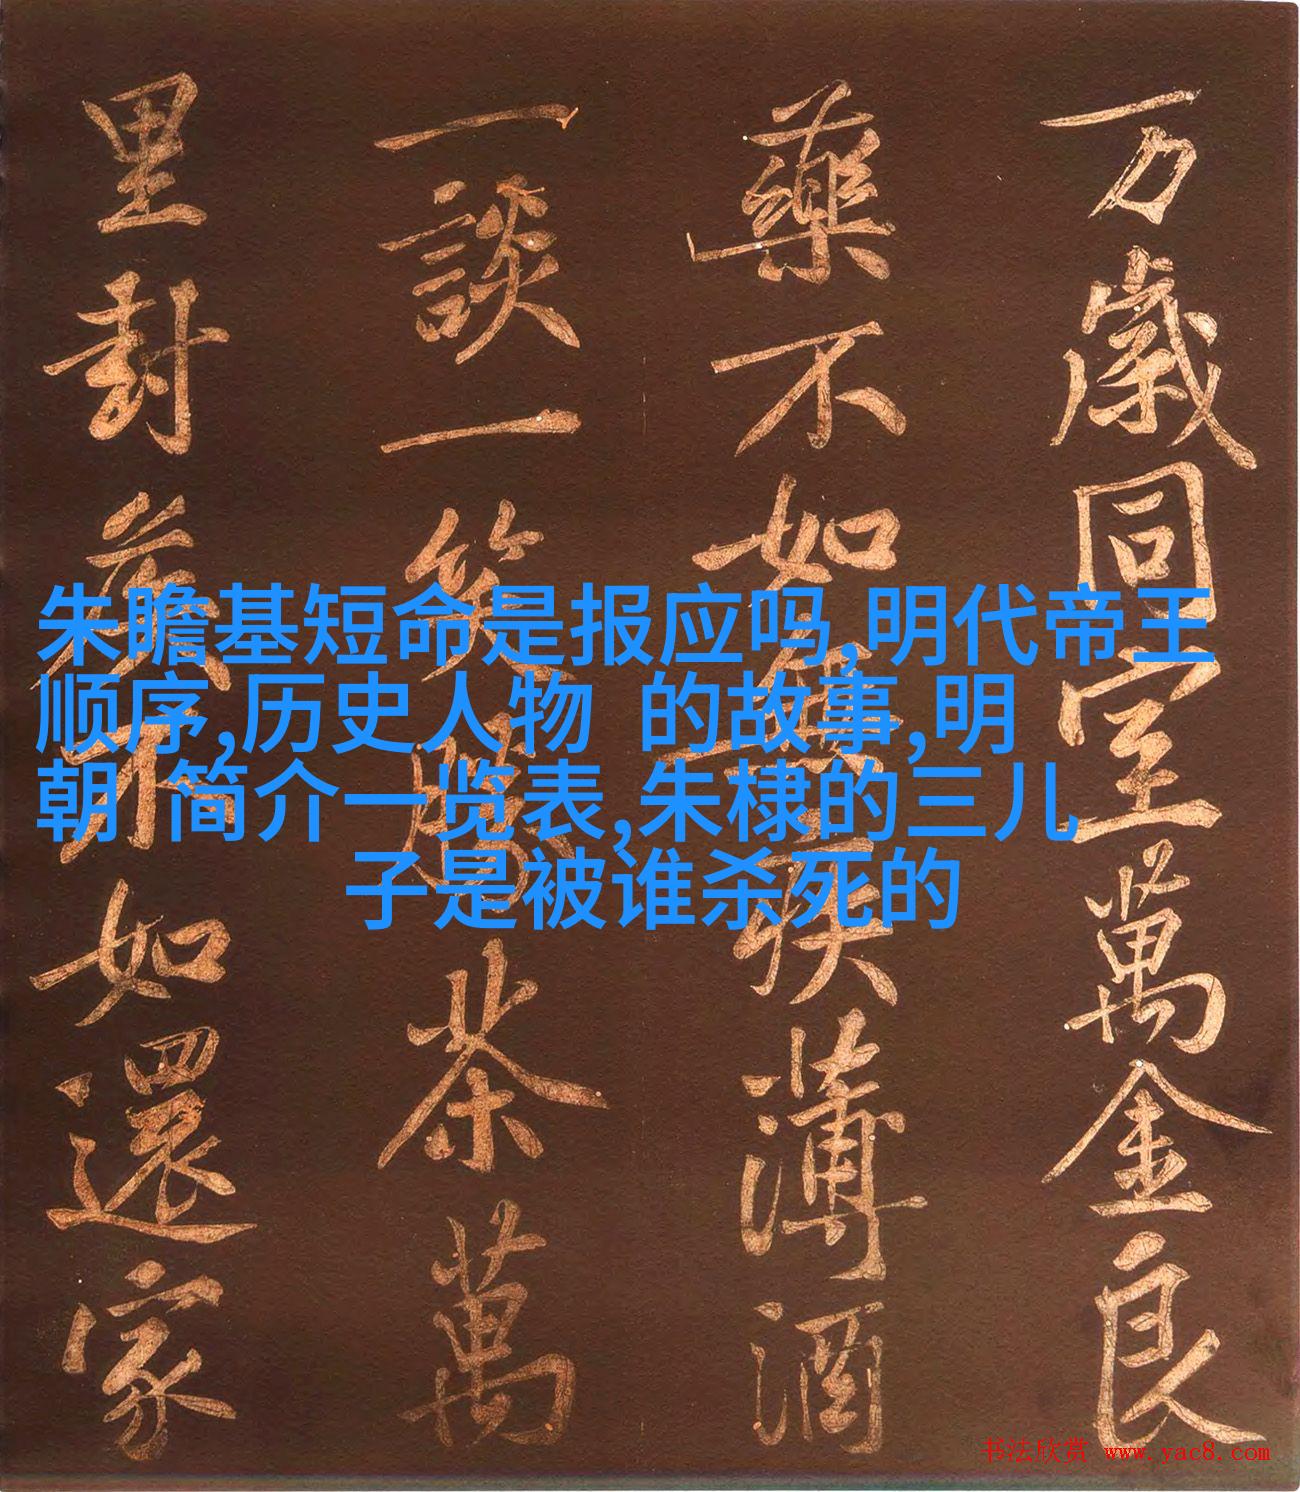 万歲同室萬金良
藥不如無疾薄酒
一談一笑勝茶萬
里封矦不如還家
朱瞻基短命是报应吗,明代帝王
顺序,历史人物 的故事,明
朝 简介一览表,朱棣的三儿
子是被谁杀死的
书法欣赏 www.yac8.com